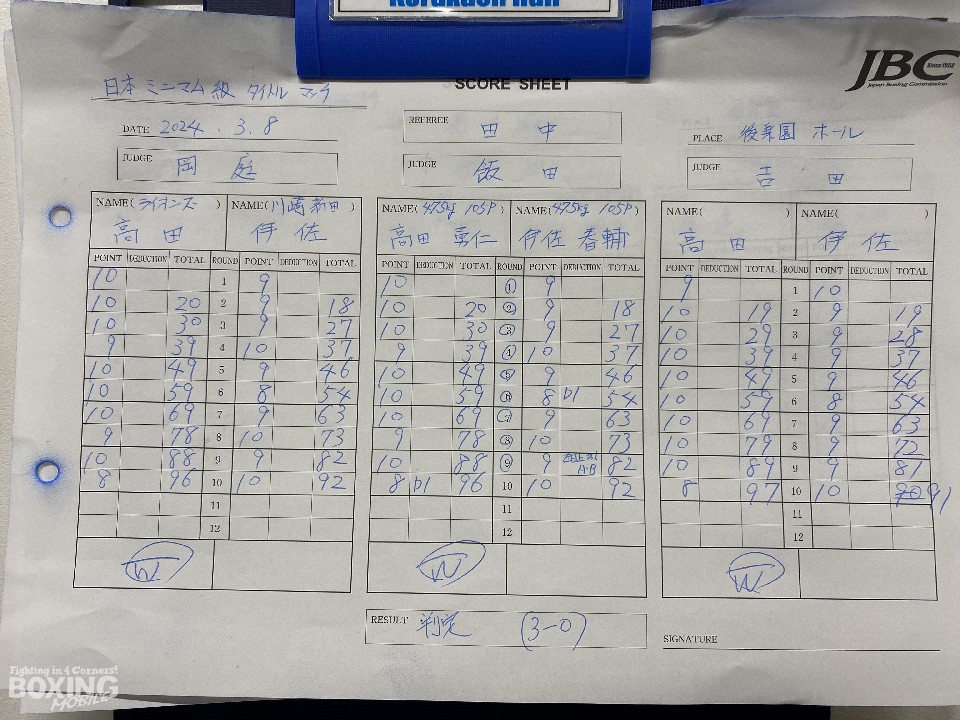 Korakuen Hall
JBC
Since 1952
Japan Boxing Commission
SCORE SHEET
日本 ミニマム級 タイトル マッチ
DATE 2024 . 3. 8
REFEREE 田 中
PLACE 後楽園 ホール
JUDGE 岡 庭
JUDGE 飯 田
JUDGE 吉 田
NAME( ライオンズ ) NAME( 川崎新田 ) NAME( 47.5kg 105P ) NAME( 47.5kg 105P ) NAME( ) NAME( )
高 田 伊 佐 高田 勇仁 伊佐 春輔 高 田 伊 佐
POINT DEDUCTION TOTAL ROUND POINT DEDUCTION TOTAL POINT DEDUCTION TOTAL ROUND POINT DEDUCTION TOTAL POINT DEDUCTION TOTAL ROUND POINT DEDUCTION TOTAL
10 1 9 10 1 9 9 1 10
10 20 2 9 18 10 20 2 9 18 10 19 2 9 19
10 30 3 9 27 10 30 3 9 27 10 29 3 9 28
9 39 4 10 37 9 39 4 10 37 10 39 4 9 37
10 49 5 9 46 10 49 5 9 46 10 49 5 9 46
10 59 6 8 54 10 59 6 8 D1 54 10 59 6 8 54
10 69 7 9 63 10 69 7 9 63 10 69 7 9 63
9 78 8 10 73 9 78 8 10 73 10 79 8 9 72
10 88 9 9 82 10 88 9 9 82 10 89 9 9 81
8 96 10 10 92 8 D1 96 10 10 92 8 97 10 10 90 91
11 11 11
12 12 12
W W W
RESULT 判定 (3-0)
SIGNATURE
Fighting in 4 Corners!
BOXING
MOBILE